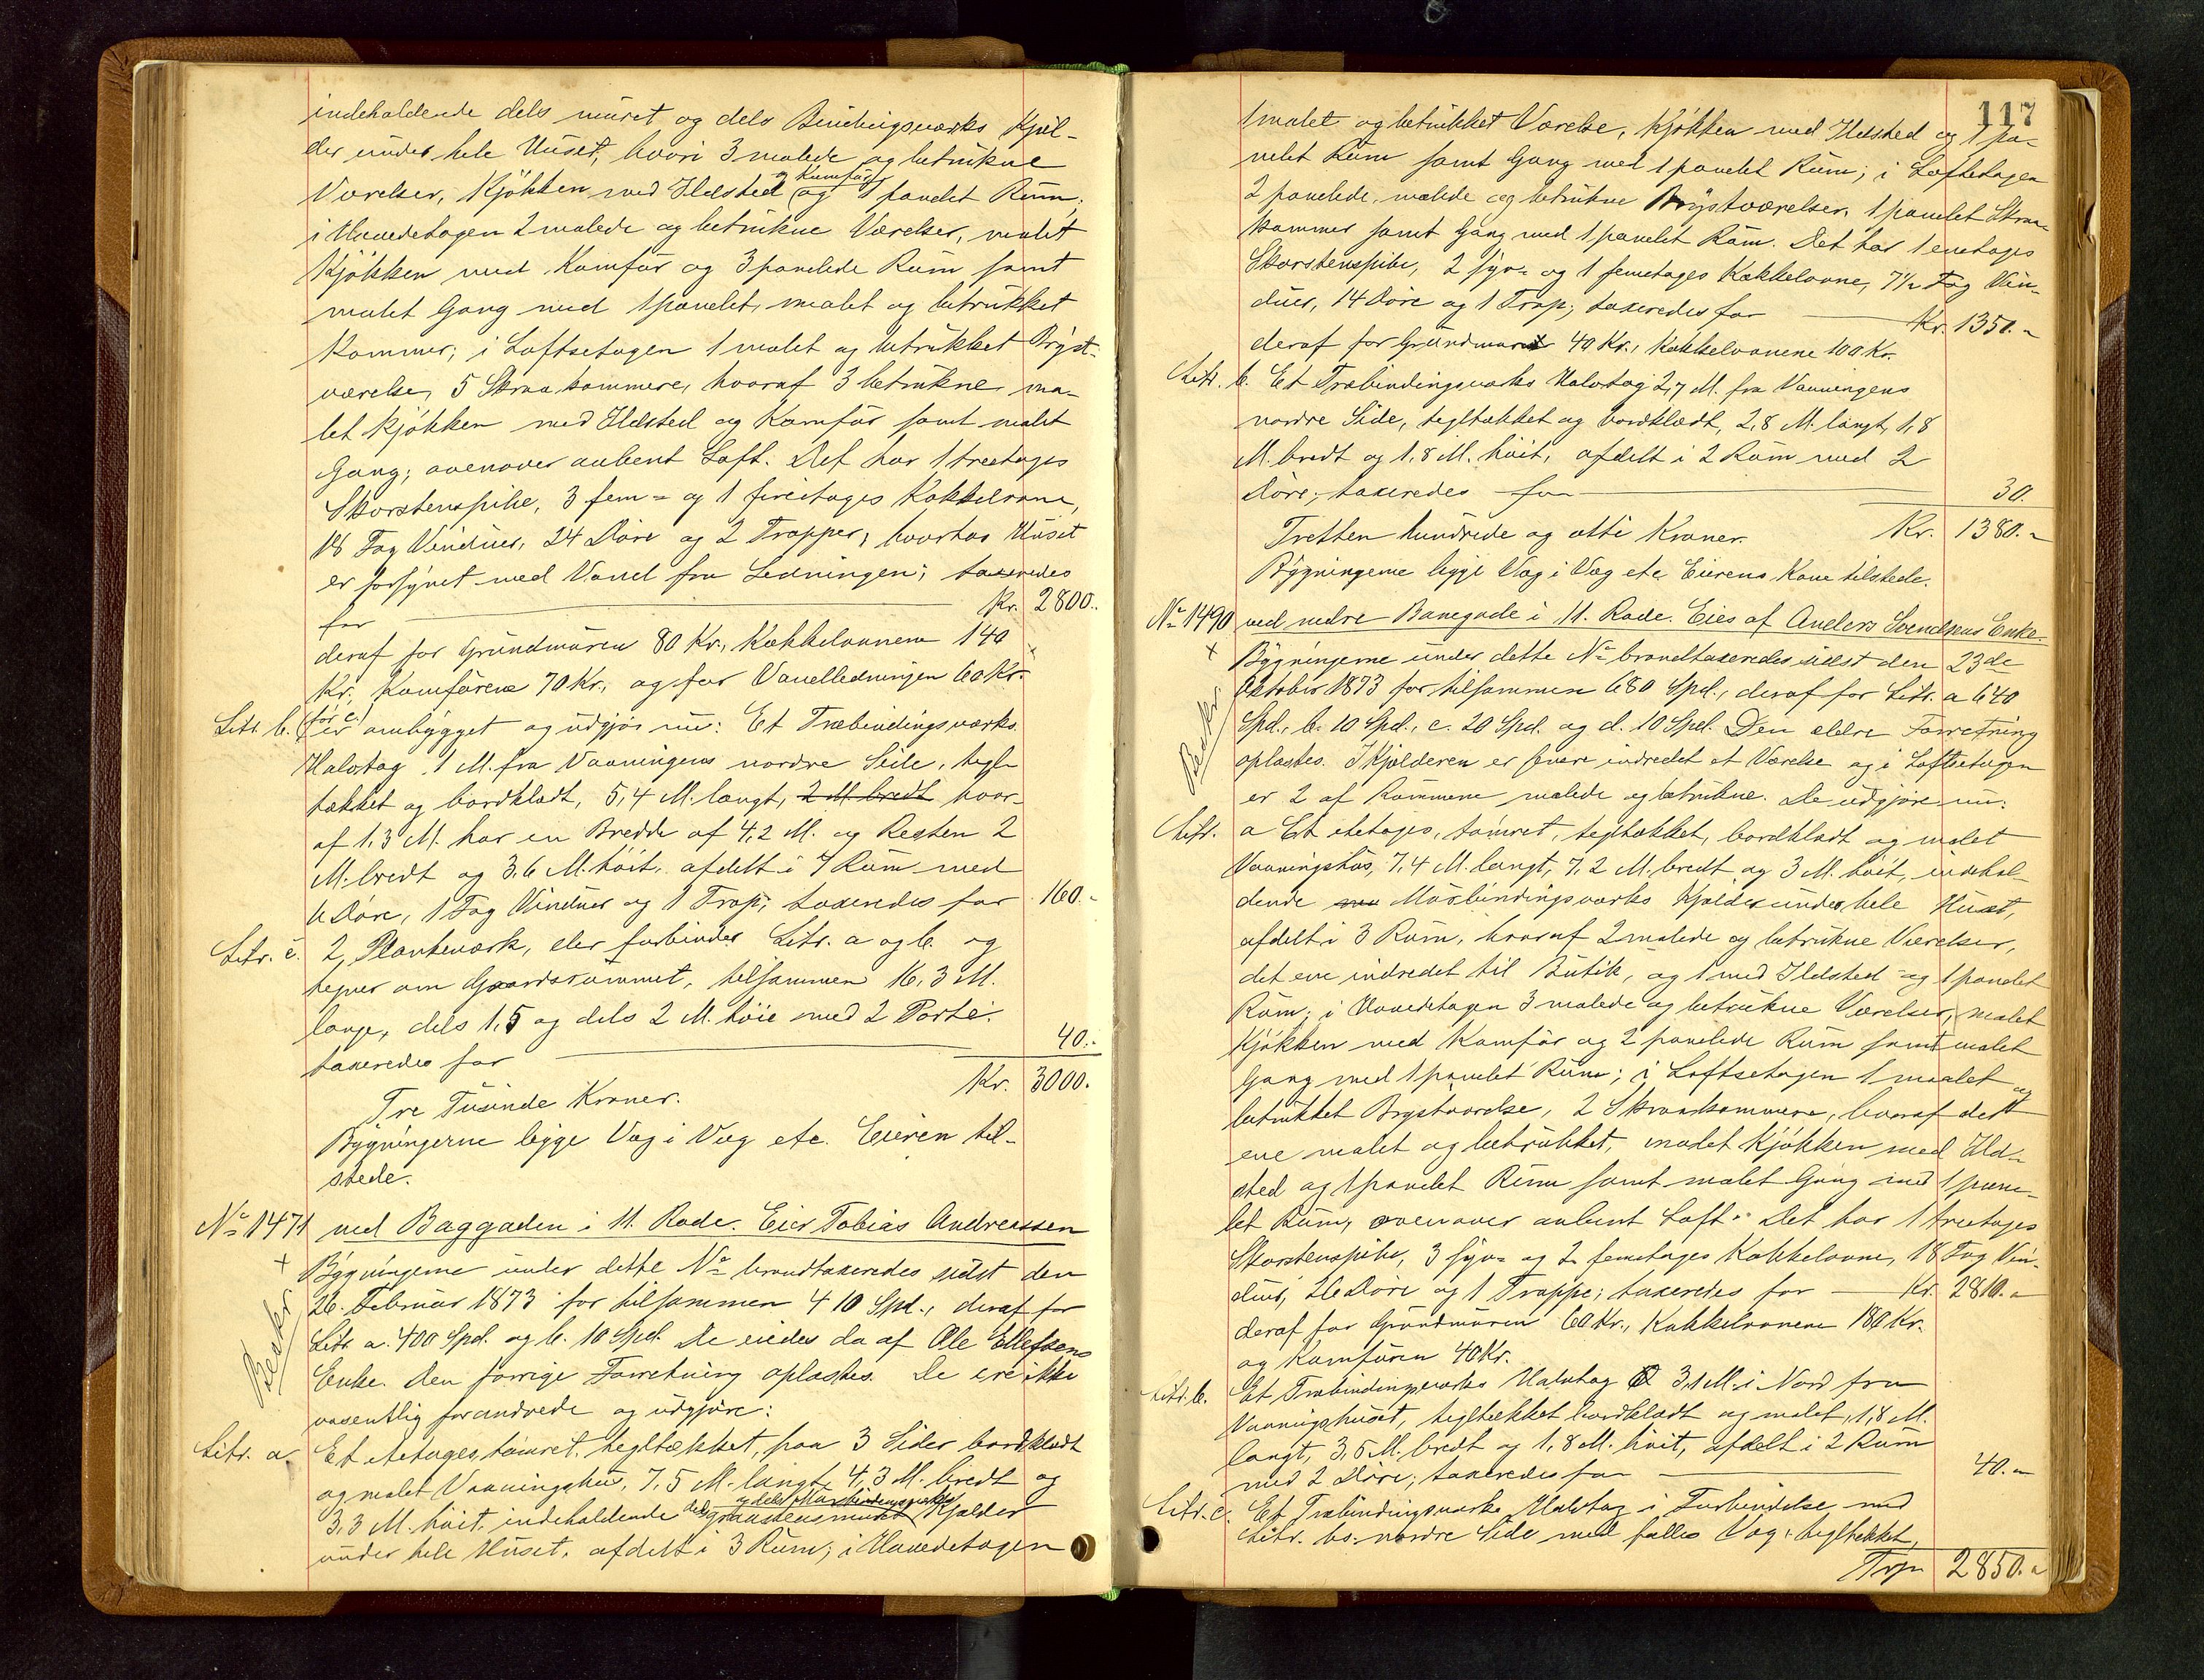 indeholdende dels muret og dels Bindingsværks Kjæl-
der under hele Huset, hvori 3 malede og betrukne
Værelser, Kjøkken med Ildsted og Komfür og 1 panelet Rum;
i Hovedetagen 2 malede og betrukne Værelser, malet
Kjøkken med Komfür og 3 panelede Rum samt
malet Gang med 1 panelet, malet og betrukket
Kammer; i Loftsetagen 1 malet og betrukket Bryst-
værelse, 5 Skraakammere, hvoraf 3 betrukne, ma-
let Kjøkken med Ildsted og Komfür samt malet
Gang; ovenover aabent Loft. Det har 1 treetages
Skorstenspibe, 3 fem- og 1 fireetages Kakkelovne,
18 Fag Vinduer, 24 Døre og 2 Trapper, hvorhos Huset
er forsynet med Vand fra Ledningen; taxeredes
for Kr. 2800.-
deraf for Grundmuren 80 Kr., Kakkelovnene 140
Kr. Komfürene 70 Kr., og for Vandledningen 60 Kr.
Litr. b. (før c.) er ombygget og udgjør nu: Et Træbindingsværks
Halvtag 1 M. fra Vaaningens nordre Side, tegl-
tækket og bordklædt, 5,4 M. langt, 2 M. bredt hvor-
af 1,3 M. har en Bredde af 4,2 M. og Resten 2
M. bredt og 3,6 M. høit, afdelt i 7 Rum med
6 Døre, 1 Fag Vinduer og 1 Trap; taxeredes for 160.-
Litr. c. 2 Plankeværk, der forbinder Litr. a og b. og
hegner om Gaardsrummet, tilsammen 16,3 M.
lange, dels 1,5 og dels 2 M. høie med 2 Porte;
taxeredes for 40.-
Tre Tusinde Kroner. Kr. 3000.
Bygningerne ligge Væg i Væg etc. Eieren til-
stede.
No 1471 ved Baggaden i 11. Rode. Eier Tobias Andreassen
+ Bygningerne under dette No brandtaxeredes sidst den
Beskr. 26. Februar 1873 for tilsammen 410 Spd., deraf for
Litr. a. 400 Spd. og b. 10 Spd. De eiedes da af Ole Ellefsens
Enke. Den forrige Forretning oplæstes. De ere ikke
væsentlig forandrede og udgjøre:
Litr. a. Et etetages, tømret, tegltækket, paa 3 Sider bordklædt
og malet Vaaningshus, 7,5 M. langt, 4,3 M. bredt og
3,3 M. høit, indeholdende dels graastensmuret og dels Murbindingsværks Kjælder
under hele Huset, afdelt i 3 Rum; i Hovedetagen
117
1 malet og betrukket Værelse, Kjøkken med Ildsted og 1 pa-
nelet Rum samt Gang med 1 panelet Rum; i Loftetagen
2 panelede, malede og betrukne Brystværelser, 1 panelet Skraa-
kammer samt Gang med 1 panelet Rum. Det har 1 enetages
Skorstenspibe, 2 syv- og 1 femetages Kakkelovne, 7½ Fag Vin-
duer, 14 Døre og 1 Trap; taxeredes for Kr. 1350.-
deraf for Grundmuren 40 Kr., Kakkelovnene 100 Kr.
Litr. b. Et Træbindingsværks Halvtag 2,7 M. fra Vaaningens
nordre Side, tegltækket og bordklædt, 2,8 M. langt, 1,8
M. bredt og 1,8 M. høit, afdelt i 2 Rum med 2
Døre; taxeredes for 30.
Tretten hundrede og otti Kroner. Kr. 1380.-
Bygningerne ligge Væg i Væg etc. Eierens Kone tilstede.
No 1490 ved nedre Banegade i 11. Rode. Eies af Anders Svendsens Enke.
+ Bygningerne under dette No brandtaxeredes sidst den 23de
Beskr. Oktober 1873 for tilsammen 680 Spd., deraf for Litr. a 640
Spd., b. 10 Spd., c. 20 Spd. og d. 10 Spd. Den ældre Forretning
oplæstes. I Kjælderen er senere indredet et Værelse og i Loftsetagen
er 2 af Rummene malede og betrukne. De udgjøre nu:
Litr. a Et etetages, tømret, tegltækket, bordklædt og malet
Vaaningshus, 7,4 M. langt, 7,2 M. bredt og 3 M. høit, indehol-
dende Murbindingsværks Kjælder under hele Huset,
afdelt i 3 Rum, hvoraf 2 malede og betrukne Værelser,
det ene indredet til Butik, og 1 med Ildsted og 1 panelet
Rum; i Hovedetagen 3 malede og betrukne Værelser, malet
Kjøkken med Komfür og 2 panelede Rum samt malet
Gang med 1 panelet Rum; i Loftsetagen 1 malet og
betrukket Brystværelse, 2 Skraakammere, hvoraf det
ene malet og betrukket, malet Kjøkken med Ild-
sted og 1 panelet Rum samt malet Gang med 1 pane-
let Rum, ovenover aabent Loft. Det har 1 treetages
Skorstenspibe, 3 syv- og 2 femetages Kakkelovne, 18 Fag Vin-
duer, 26 Døre og 1 Trappe; taxeredes for Kr. 2810.-
deraf for Grundmuren 60 Kr., Kakkelovnene 180 Kr.
og Komfüren 40 Kr.
Litr. b. Et Træbindingsværks Halvtag 3,1 M. i Nord fra
Vaaningshuset, tegltækket bordklædt og malet, 1,8 M.
langt, 3,5 M. bredt og 1,8 M. høit, afdelt i 2 Rum
med 2 Døre; taxeredes for 40.-
Litr. c. Et Træbindingsværks Halvtag i Forbindelse med
Litr. bs. nordre Side med fælles Væg, tegltækket,
Trsp. 2850.-